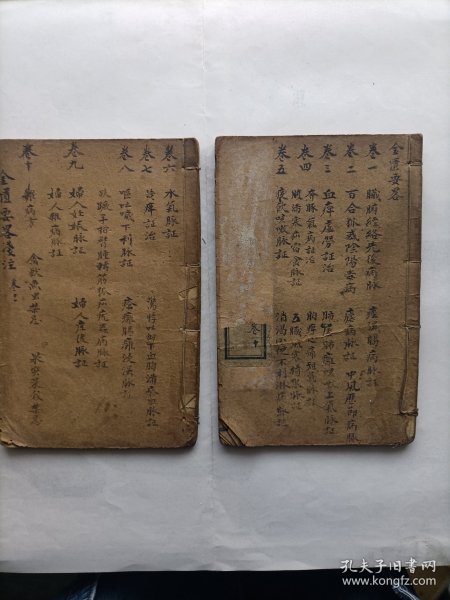 金匱要畧
卷一 臟腑經絡先後病脉 痙濕暍病脉証
卷二 百合狐惑陰陽毒病 瘧病脉証 中風歷節病脉
卷三 血痺虛勞証治 肺痿肺癰咳嗽上氣脉証
卷四 奔豚氣病証治 胸痺心痛短氣脉証
腹滿寒疝宿食脉証 五臟風寒積聚脉証
卷五 痰飲咳嗽脉証 消渴小便不利淋病脉証
卷十
卷六 水氣脉証
卷七 黃疸証治 驚悸吐衄下血胸滿瘀血脉証
卷八 嘔吐噦下利脉証 瘡癰腸癰浸淫脉証
趺蹶手指臂腫轉筋狐疝蚘蟲病脉証
卷九 婦人妊娠脉証 婦人產後脉証
婦人雜病脉証
卷十 雜病方 禽獸魚虫禁忌 果實菜穀禁忌
金匱要畧淺注
孔夫子旧书网
www.kongfz.com